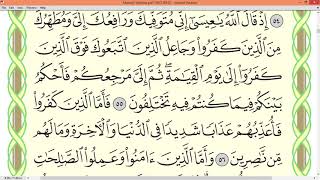 ٥٤ إِذْ قَالَ ٱللَّهُ يَـٰعِيسَىٰٓ إِنِّى مُتَوَفِّيكَ وَرَافِعُكَ إِلَىَّ وَمُطَهِّرُكَ
مِنَ ٱلَّذِينَ كَفَرُوا۟ وَجَاعِلُ ٱلَّذِينَ ٱتَّبَعُوكَ فَوْقَ ٱلَّذِينَ
كَفَرُوٓا۟ إِلَىٰ يَوْمِ ٱلْقِيَـٰمَةِ ۖ ثُمَّ إِلَىَّ مَرْجِعُكُمْ فَأَحْكُمُ
بَيْنَكُمْ فِيمَا كُنتُمْ فِيهِ تَخْتَلِفُونَ ٥٥ فَأَمَّا ٱلَّذِينَ كَفَرُوا۟
فَأُعَذِّبُهُمْ عَذَابًا شَدِيدًا فِى ٱلدُّنْيَا وَٱلْـَٔاخِرَةِ وَمَا لَهُم
مِّن نَّـٰصِرِينَ ٥٦ وَأَمَّا ٱلَّذِينَ ءَامَنُوا۟ وَعَمِلُوا۟ ٱلصَّـٰلِحَـٰتِ